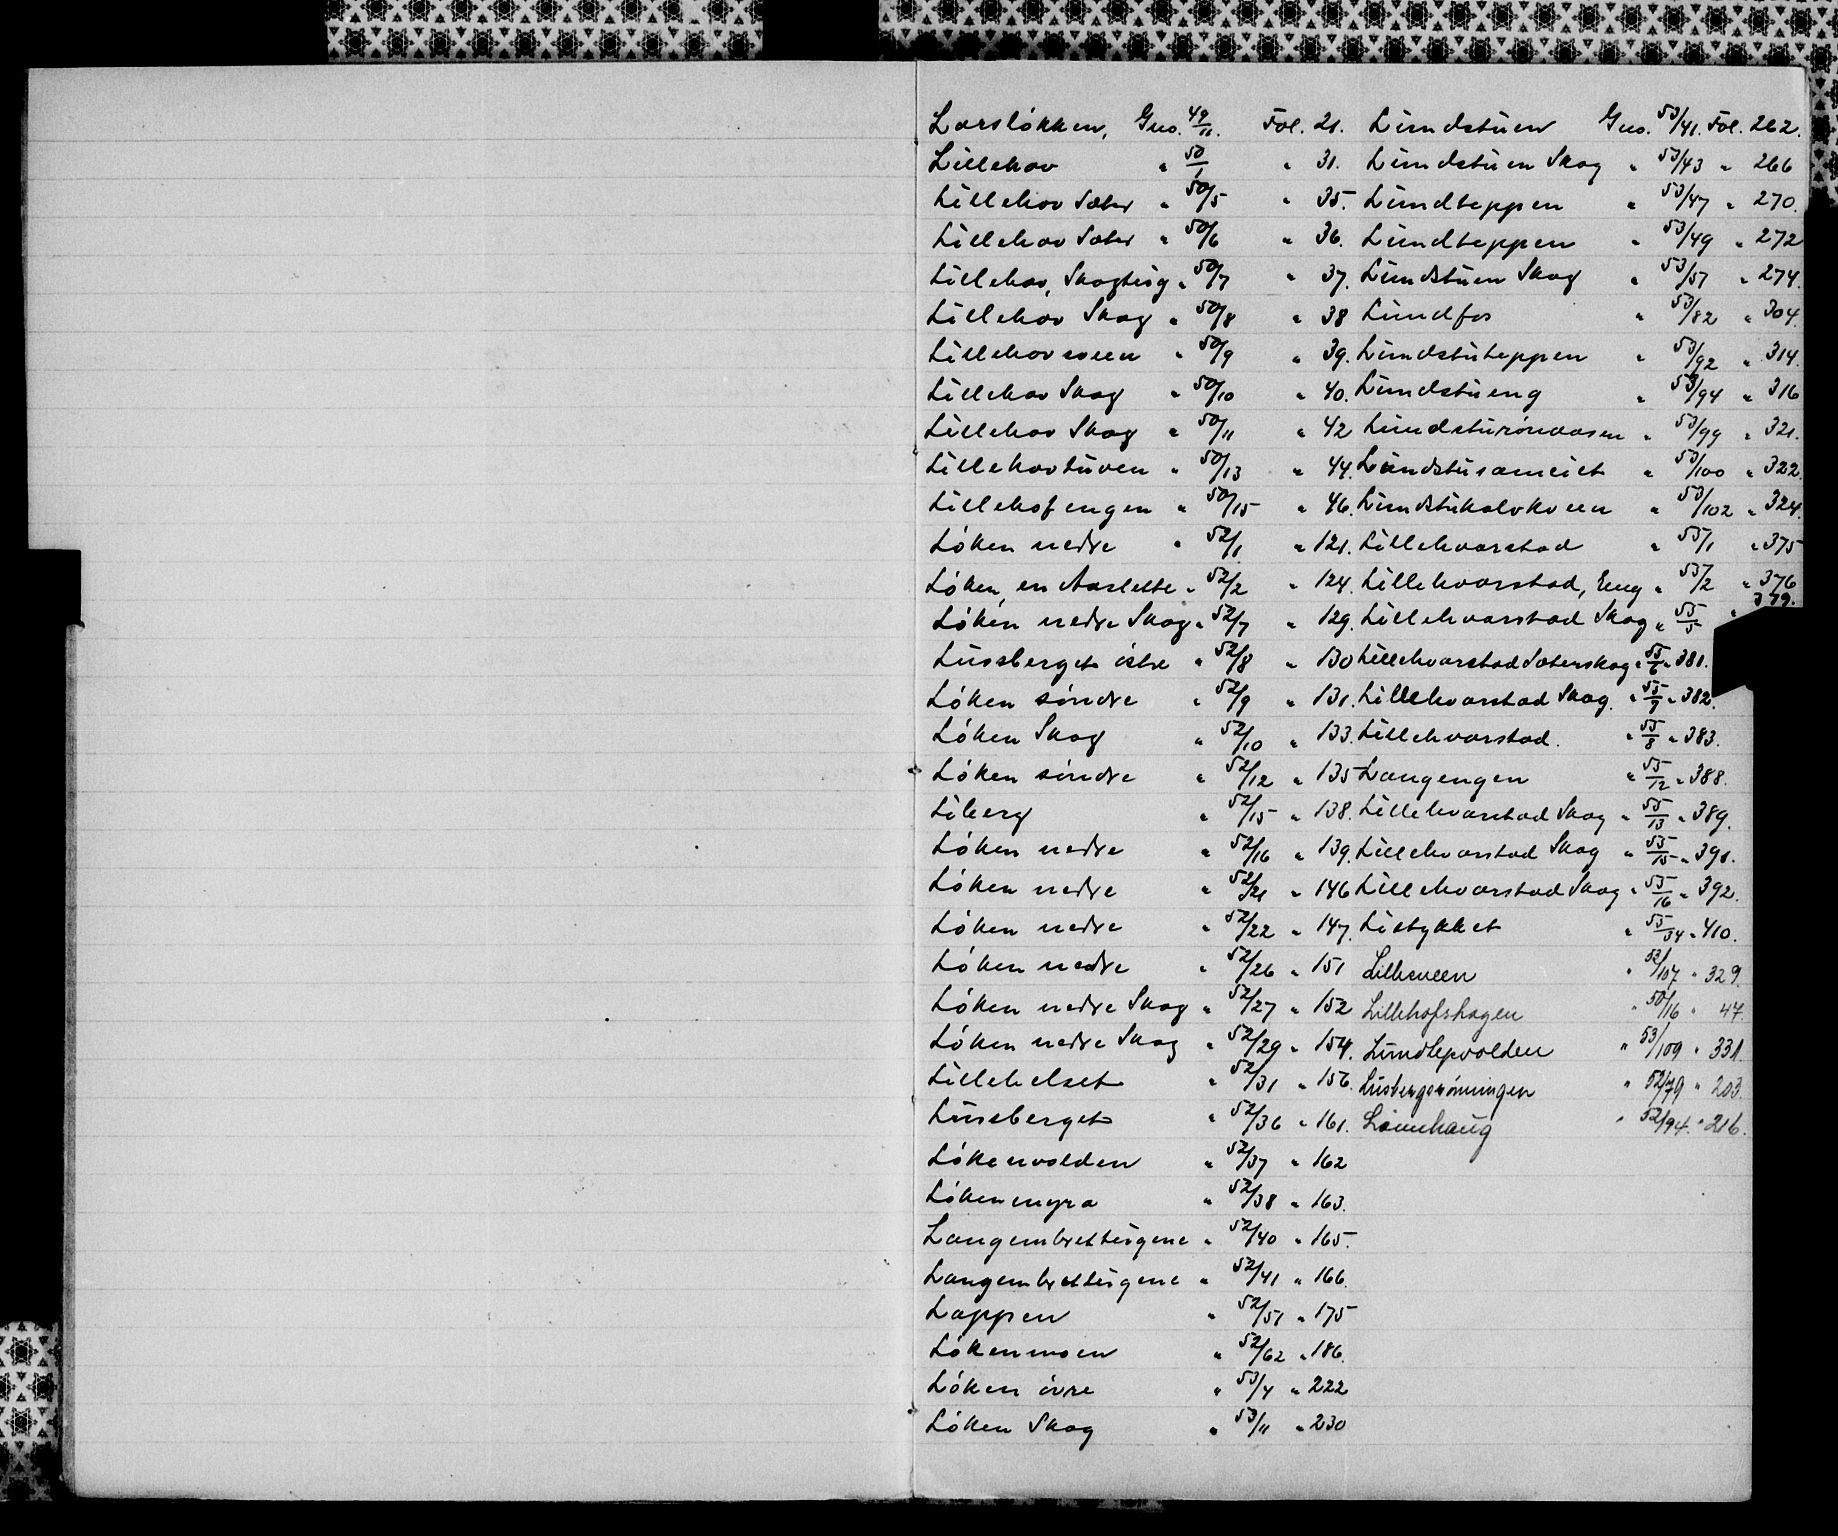 Larsløkken, Gno. 49/11. Fol. 21.
Lillehov " 50/1 " 31.
Lillehov Sæter " 50/5 " 35.
Lillehov Sæter " 50/6 " 36.
Lillehov, Skogteig " 50/7 " 37.
Lillehov Skog " 50/8 " 38
Lillehovsveen " 50/9 " 39.
Lillehov Skog " 50/10 " 40.
Lillehov Skog " 50/11 " 42
Lillehovtuven " 50/13 " 44.
Lillehofengen " 50/15 " 46.
Løken nedre " 52/1 " 121.
Løken, en Aaslette " 52/2 " 124.
Løken nedre Skog " 52/7 " 129.
Lussberget østre " 52/8 " 130
Løken søndre " 52/9 " 131.
Løken Skog " 52/10 " 133.
Løken søndre " 52/12 " 135
Liberg " 52/15 " 138.
Løken nedre " 52/16 " 139.
Løken nedre " 52/21 " 146
Løken nedre " 52/22 " 147.
Løken nedre " 52/26 " 151
Løken nedre Skog " 52/27 " 152
Løken nedre Skog " 52/29 " 154.
Lillehelset " 52/31 " 156.
Lussberget " 52/36 " 161.
Løkenvolden " 52/37 " 162
Løkenmyra " 52/38 " 163.
Langembretteigene " 52/40 " 165.
Langembretteigene " 52/41 " 166.
Lappen " 52/51 " 175
Løkenmoen " 52/62 " 186.
Løken øvre " 53/4 " 222
Løken Skog " 53/11 " 230
Lundstuen Gno. 53/41. Fol. 262.
Lundstuen Skog " 53/43 " 266
Lundteppen " 53/47 " 270.
Lundteppen " 53/49 " 272
Lundstuen Skog " 53/51 " 274.
Lundfos " 53/82 " 304.
Lundstuteppen " 53/92 " 314.
Lundstueng " 53/94 " 316
Lundsturønaasen " 53/99 " 321.
Lundstusameiet " 53/100 " 322
Lundstukalvkveen " 53/102 " 324.
Lillehvarstad " 55/1 " 375
Lillehvarstad, Eng " 55/2 " 376
Lillehvarstad Skog " 55/5 " 379.
Lillehvarstad Sæterskog " 55/6 " 381.
Lillehvarstad Skog. " 55/7 " 382.
Lillehvarstad. " 55/8 " 383.
Langengen " 55/12 " 388.
Lillehvarstad Skog " 55/13 " 389.
Lillehvarstad Skog " 55/15 " 391.
Lillehvarstad Skog " 55/16 " 392.
Listykket " 55/34 " 410.
Lillesveen " 53/107 " 329.
Lillehofshagen " 50/16 " 47.
Lundtepvolden " 53/109 " 331.
Lusbergsrønningen " 52/79 " 203.
Lønnhaug " 52/94. " 216.